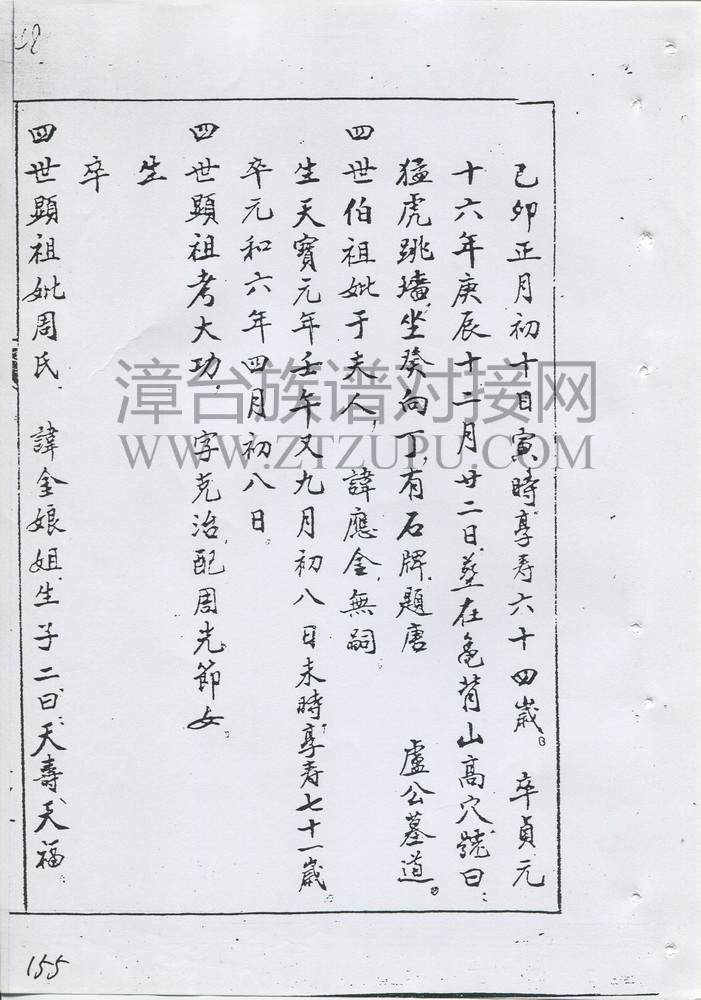 己卯正月初十日寅時,享寿六十四歲。 卒貞元
十六年庚辰十二月廿二日,葬在龜背山高穴,號曰:
猛虎跳墻,坐癸向丁,有石牌,題唐 盧公墓道。
四世伯祖妣于夫人, 諱應金,無嗣
生天寶元年壬午又九月初八日未時,享寿七十一歲
卒元和六年四月初八日。
四世顯祖考大功, 字克治,配周光節女。
生
卒
四世顯祖妣周氏. 諱金娘姐,生子二曰:天壽天福.
155
漳台族谱对接网
WWW.ZTZUPU.COM